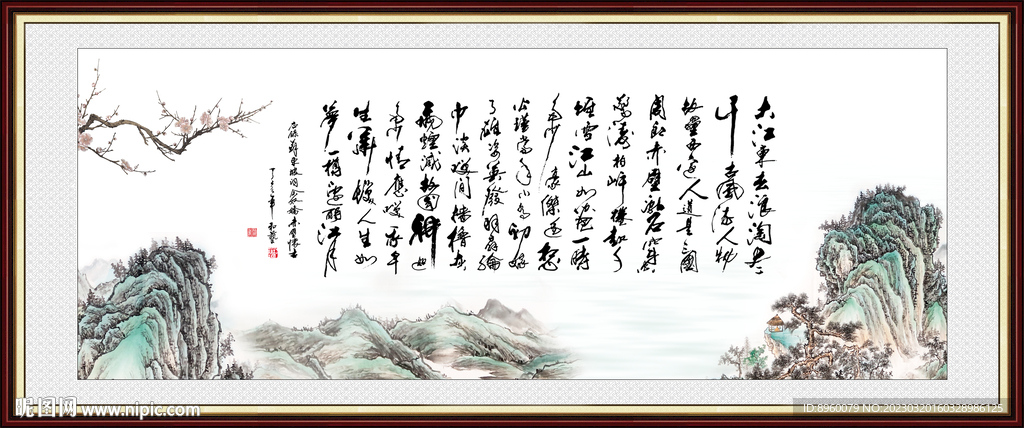 大江東去浪淘盡
千古風流人物
故壘西邊人道是三國
周郎赤壁亂石崩雲
驚濤拍岸捲起千
堆雪江山如畫一時
多少豪傑遙想
公瑾當年小喬初嫁
了雄姿英發羽扇綸
巾談笑間檣櫓灰
飛煙滅故國神遊
多情應笑我早
生華髮人生如
夢一樽還酹江月
昵图网 www.nipic.com
ID:8960079 NO:20230320160328986125